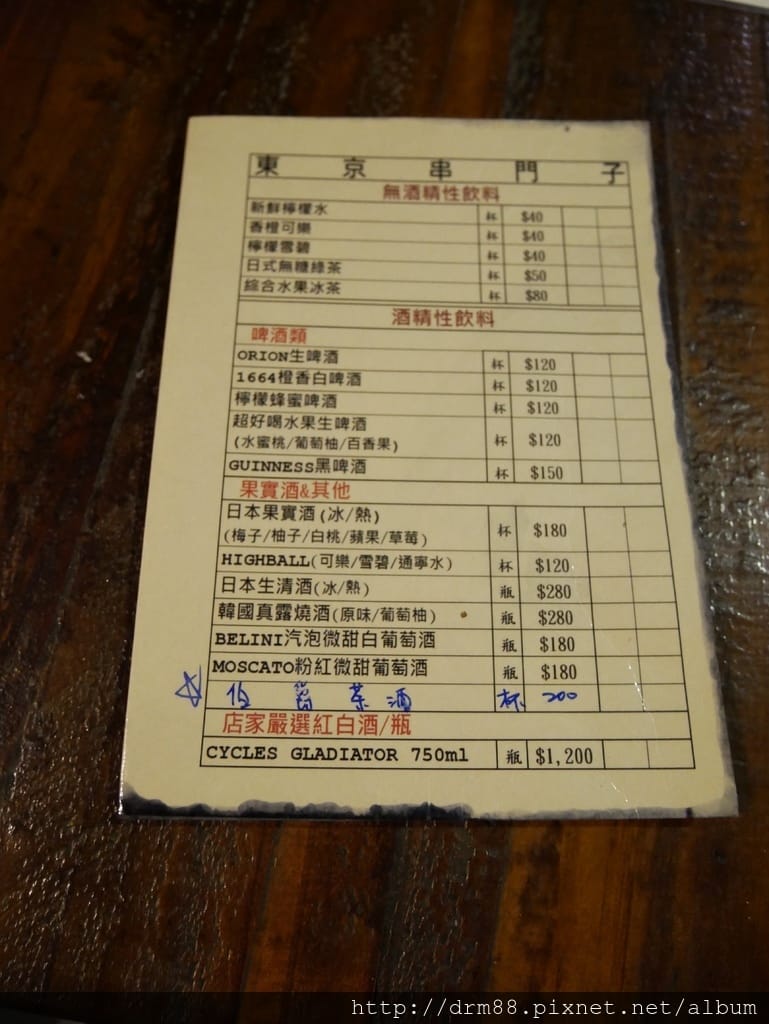 東京串門子
無酒精性飲料
新鮮檸檬水 杯 $40
香橙可樂 杯 $40
檸檬雪碧 杯 $40
日式無糖綠茶 杯 $50
綜合水果冰茶 杯 $80
酒精性飲料
啤酒類
ORION生啤酒 杯 $120
1664橙香白啤酒 杯 $120
檸檬蜂蜜啤酒 杯 $120
超好喝水果生啤酒 杯 $120
(水蜜桃/葡萄柚/百香果)
GUINNESS黑啤酒 杯 $150
果實酒&其他
日本果實酒(冰/熱) 杯 $180
(梅子/柚子/白桃/蘋果/草莓)
HIGHBALL(可樂/雪碧/通寧水) 杯 $120
日本生清酒(冰/熱) 瓶 $280
韓國真露燒酒(原味/葡萄柚) 瓶 $280
BELINI汽泡微甜白葡萄酒 瓶 $180
MOSCATO粉紅微甜葡萄酒 瓶 $180
☆ 伯爵茶酒 杯 200
店家嚴選紅白酒/瓶
CYCLES GLADIATOR 750ml 瓶 $1,200
http://drm88.pixnet.net/album